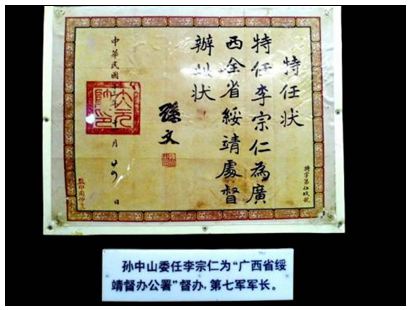 特任状
特任李宗仁為廣
西全省綏靖處督
辦此状
孫文
中華民國
月
日
孙中山委任李宗仁为“广西省绥
靖督办公署”督办，第七军军长。